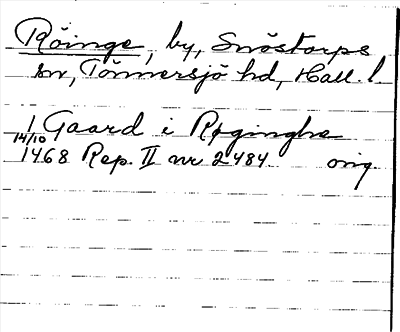 Röinge, by, Snöstorps
sn, Tönnersjö hd, Hall. l.
1 Gaard i Røginghe
14/10
1468 Rep. II nr 2484 orig.